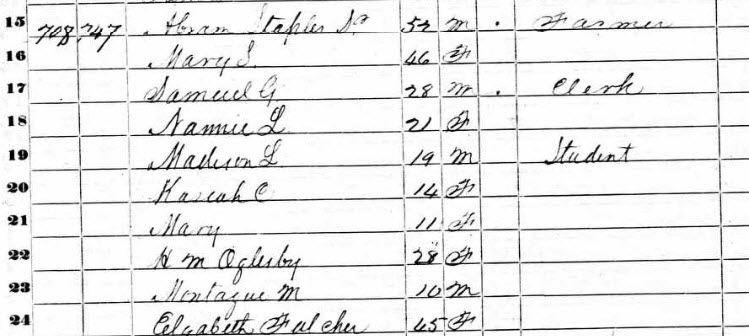 15 708 747 Abram Staples Sr 52 M . Farmer
16 Mary S. 46 F
17 Samuel G 28 M . Clerk
18 Nannie L 21 F
19 Madison L 19 M Student
20 Kasiah C 14 F
21 Mary 11 F
22 H M Oglesby 28 F
23 Montague M 10 M
24 Elizabeth Fulcher 45 F